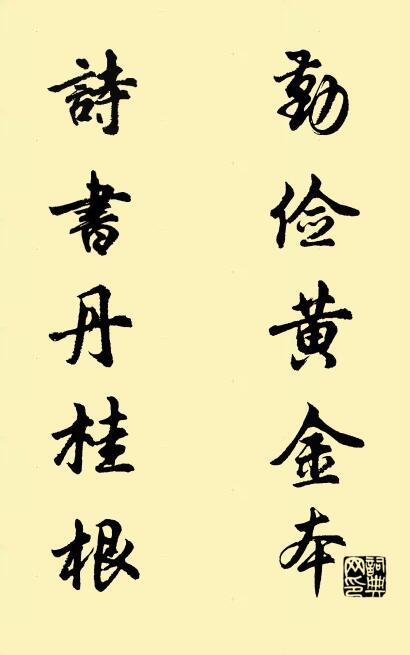 勤俭黄金本
詩書丹桂根
詞典网印